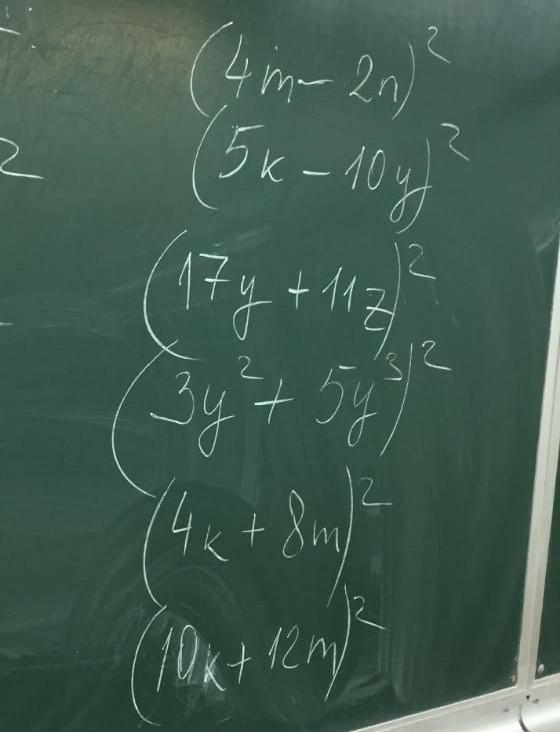 (4m - 2n)²
(5k - 10y)²
2
(17y + 11z)²
(3y² + 5y³)²
(4k + 8m)²
(10k + 12m)²